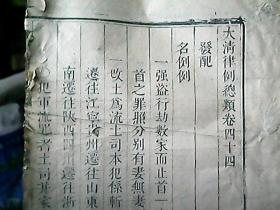 大清律例總類卷四十四
發配
名例例
一强盜行劫數家而止首一
首之罪照分别有妻無妻
一改土爲流土司本犯係斬
遷往江寧貴州遷往山東
南遷往陝西四川遷往浙
犯軍流罪者土司并家